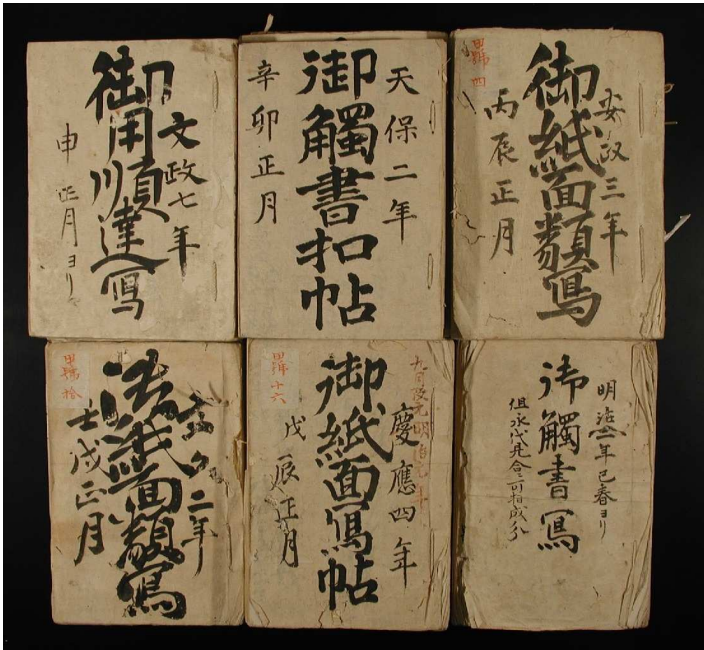 文政七年
御用順達寫
申正月ヨリ
天保二年
御觸書扣帖
辛卯正月
安政三年
御紙面類寫
丙辰正月
甲號 四
文久二年
御紙面類寫
壬戌正月
甲號 拾
九月改元明治元年
慶應四年
御紙面寫帖
戊辰正月
甲號 十六
明治二年巳春ヨリ
御觸書寫
但永代見合ニ可相成分